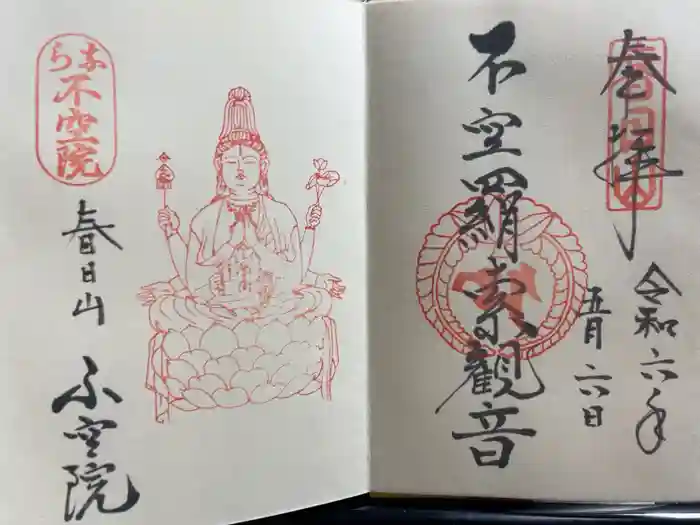 奉拝
春日山
令和六年
五月六日
不空羂索観音
なら
不空院
春日山
不空院